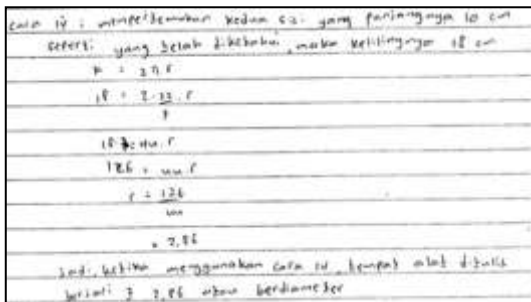 cara IV : mempertemukan kedua sisi yang panjangnya 10 cm
seperti yang telah diketahui, maka kelilingnya 18 cm
K = 2πr
18 = 2 . 22 . r
7
18.7 = 44 . r
126 = 44 . r
r = 126
44
= 2,86
Jadi, ketika menggunakan cara IV, tempat alat ditulis
berjari 2 2,86 atau berdiameter